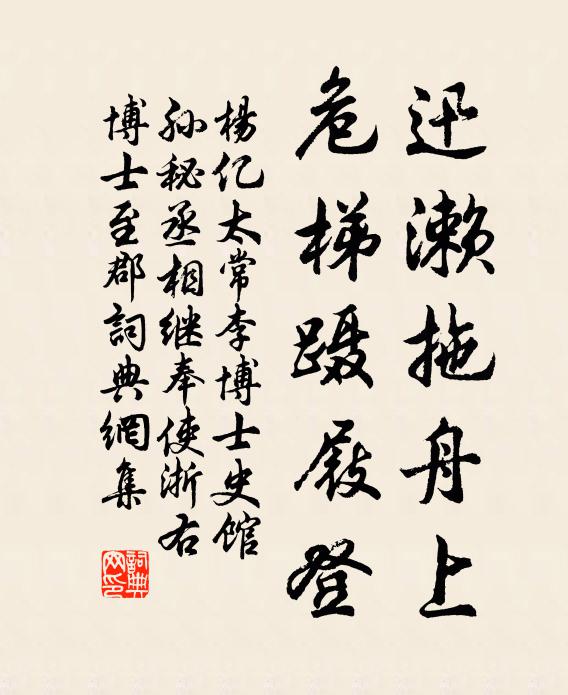 迅濑拖舟上
危梯蹑屐登
杨亿太常李博士史馆
孙秘丞相继奉使浙右
博士至郡词典网集
词典网印